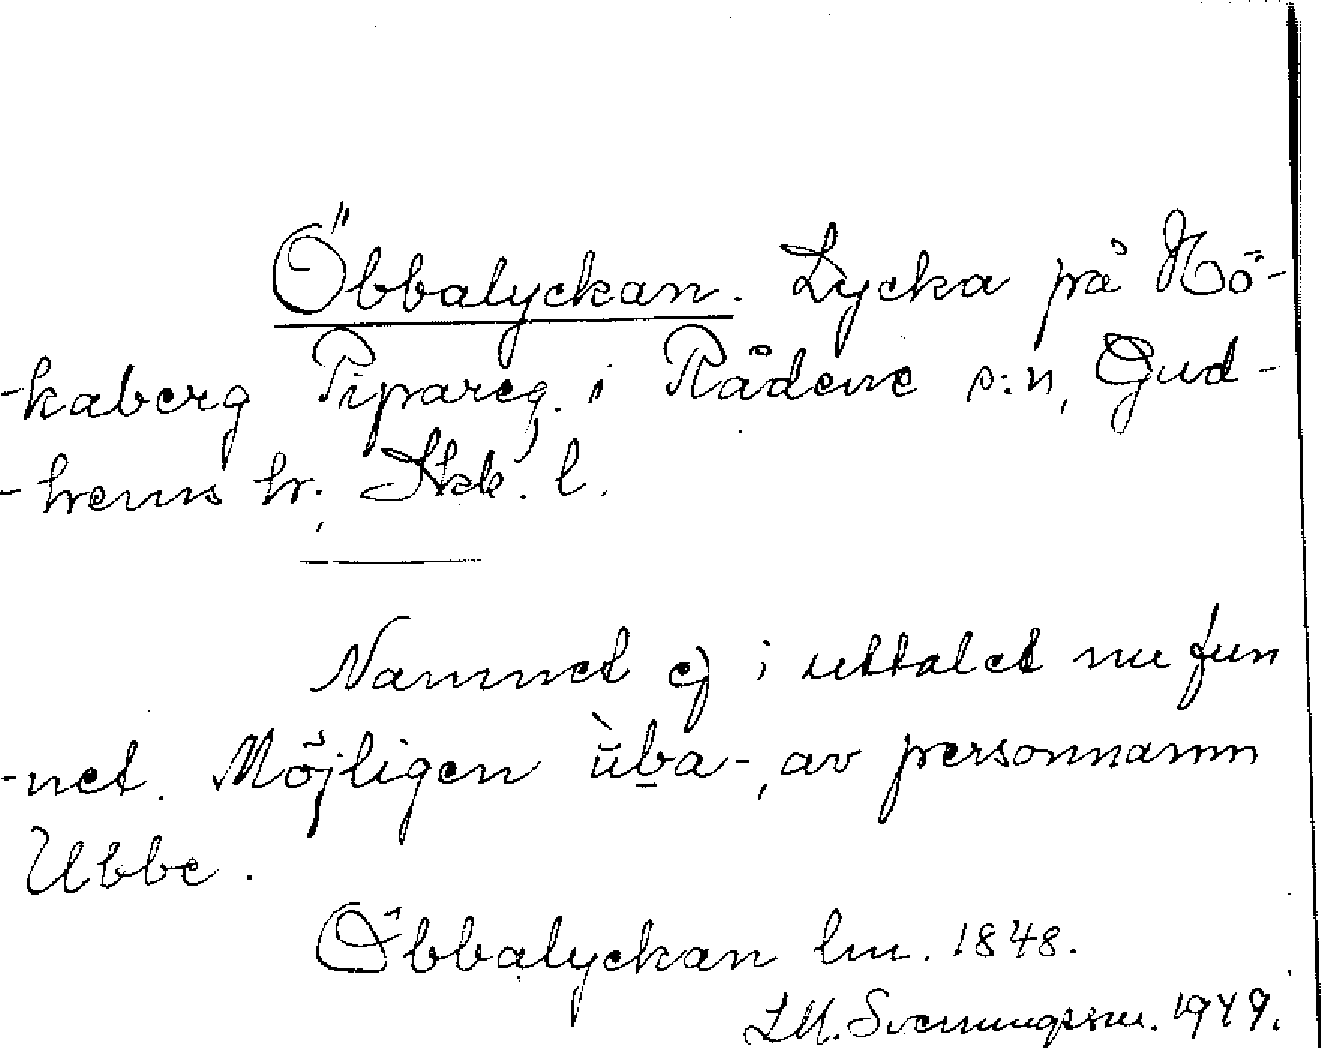 Öbbalyckan. Lycka på Hö-
-kaberg Pipareg. i Rådene s:n, Gud-
-hems hr. Skb. l.
Namnet ej i uttalet nu fun
-net. Möjligen ùba-, av personnamn
Ubbe.
Öbbalyckan lm. 1848.
Svenungsson. 1949.